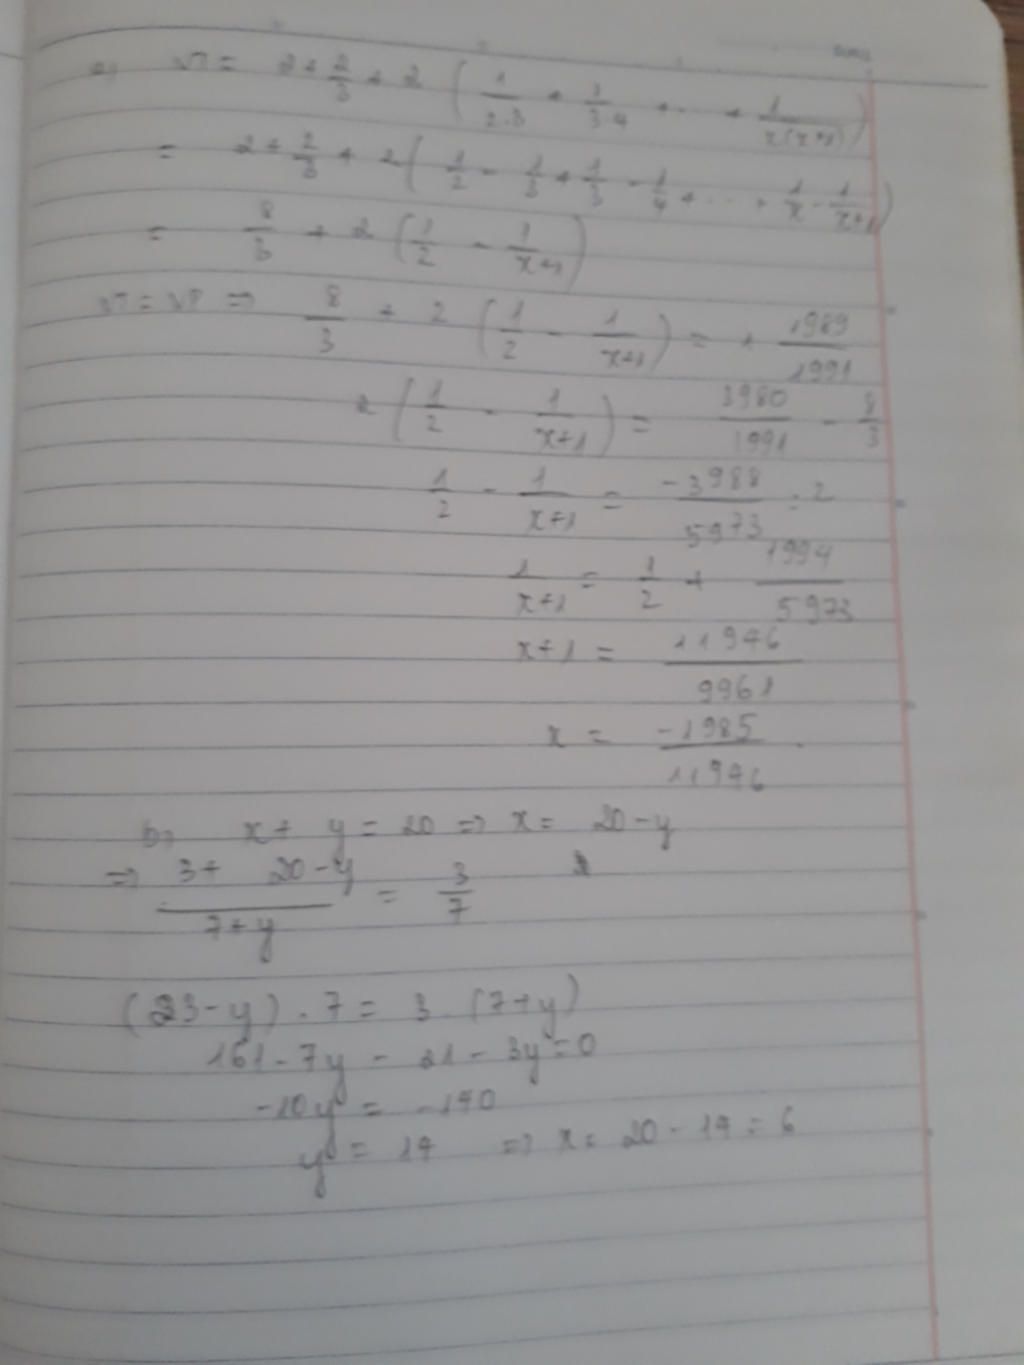 a, VT = 2 + 2/3 + 2 ( 1/2.3 + 1/3.4 + ... + 1/x(x+1) )
= 2 + 2/3 + 2 ( 1/2 - 1/3 + 1/3 - 1/4 + ... + 1/x - 1/x+1 )
= 8/3 + 2 ( 1/2 - 1/x+1 )
VT = VP => 8/3 + 2 ( 1/2 - 1/x+1 ) = 1 1989/1991
2 ( 1/2 - 1/x+1 ) = 3980/1991 - 8/3
1/2 - 1/x+1 = -3988/5973 : 2
1/x+1 = 1/2 + 1994/5973
x+1 = 11946/9961
x = -1985/11946 .
b, x + y = 20 => x = 20 - y
=> 3 + 20 - y/7 + y = 3/7
(23 - y) . 7 = 3 . (7 + y)
161 - 7y - 21 - 3y = 0
-10y = -140
y = 14 => x = 20 - 14 = 6